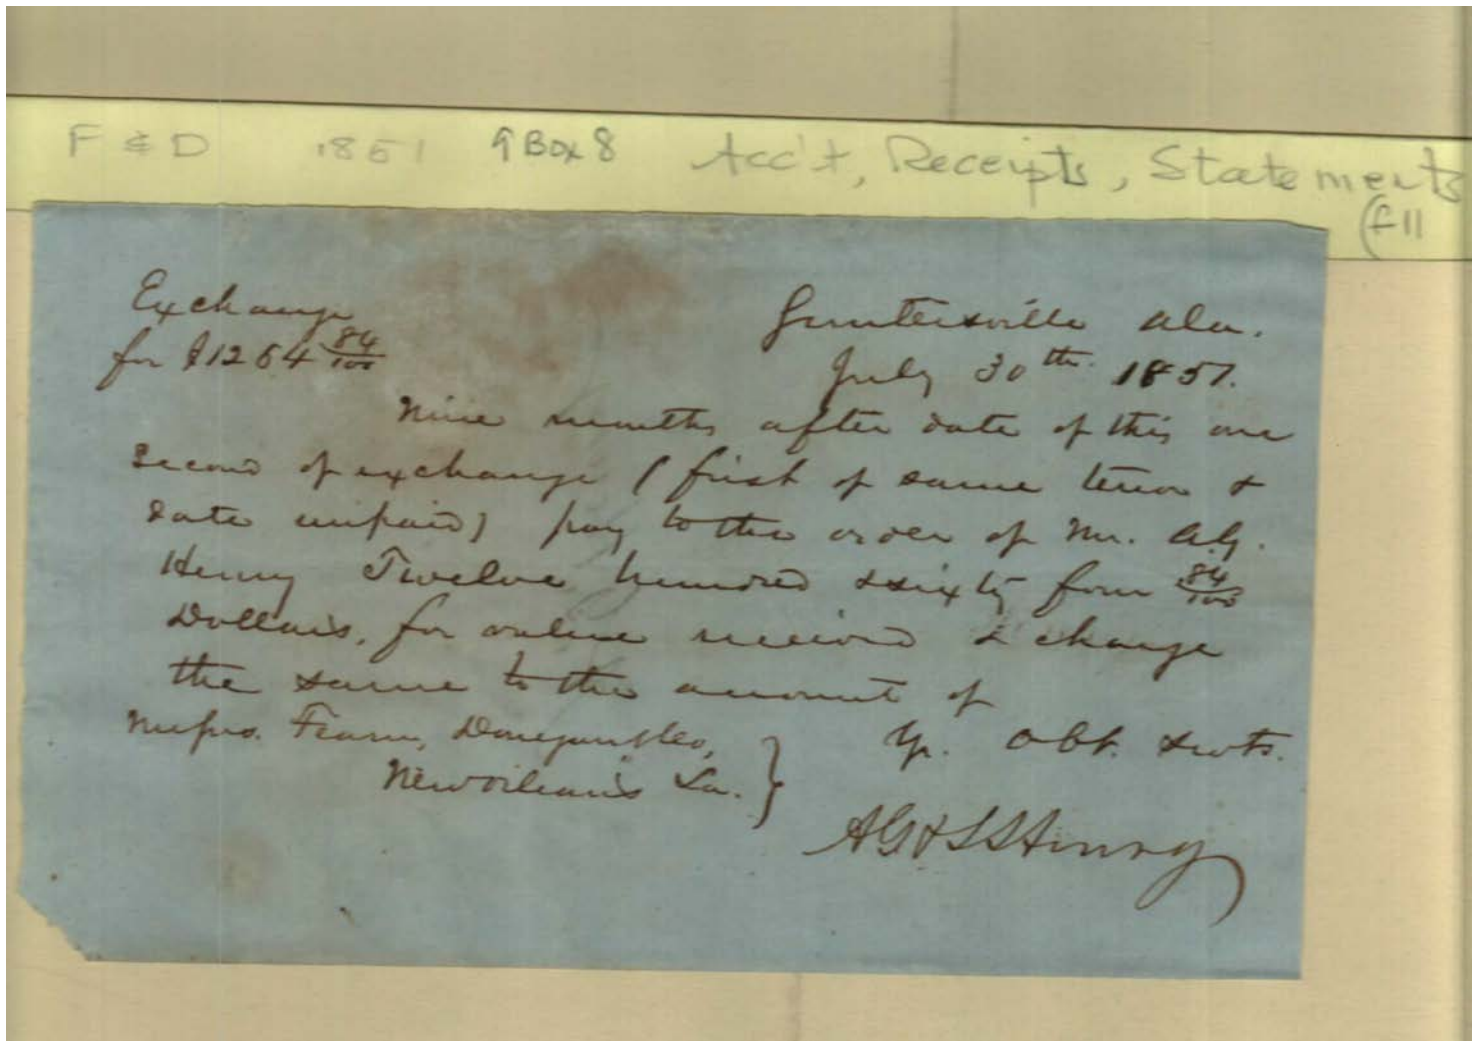 F & D 1851 9 Box 8 Acc't, Receipts, Statements
(f 11
Exchange
for $1264 84/100
Guntersville Ala.
July 30th. 1851.
Nine months after date of this our
second of exchange (first of same tenor &
date unpaid) pay to the order of Mr. A.G.
Henry Twelve hundred & sixty four 84/100
Dollars, for value received & charge
the same to the account of
Messrs. Fearn, Donegan & Co,
New Orleans La.
Yr. Obt. Svts.
A G & S S Henry